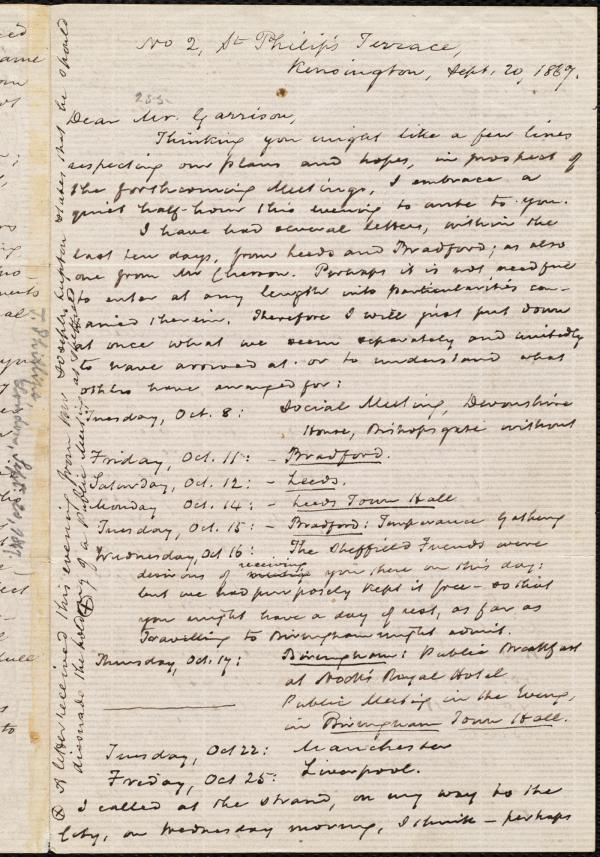 No 2, St Philip's Terrace,
Kensington, Sept. 20, 1867.
Dear Mr. Garrison,
Thinking you might like a few lines
respecting our plans and hopes, in prospect of
the forthcoming Meetings, I embrace a
quiet half-hour this evening to write to you.
I have had several letters, within the
last ten days, from Leeds and Bradford; as also
one from Mr Chesson. Perhaps it is not needful
to enter at any length into particularities con-
tained therein. Therefore I will just put down
at once what we seem separately and unitedly
to have arrived at or to understand what
others have arranged for:
Tuesday, Oct. 8: Social Meeting, Devonshire
House, Bishopsgate without
Friday, Oct. 11: - Bradford.
Saturday, Oct. 12: - Leeds.
Monday Oct. 14: - Leeds Town Hall
Tuesday, Oct. 15: - Bradford: Temperance Gathering
Wednesday, Oct 16: The Sheffield Friends were
desirous of receiving you there on this day:
but we had purposely kept it free - so that
you might have a day of rest, as far as
travelling to Birmingham might admit.
Thursday, Oct. 17: Birmingham: Public Breakfast
at Nock's Royal Hotel.
Public Meeting in the Eveng,
in Birmingham Town Hall.
Tuesday, Oct 22: Manchester
Friday, Oct 25: Liverpool.
I called at the Strand, on my way to the
City, on Wednesday morning, I think - perhaps
⊗ A letter received this evening from Mr Joseph Lupton states that he should
dissuade the holding of a public Meeting at Sheffield
London Sept. 20, 1867.